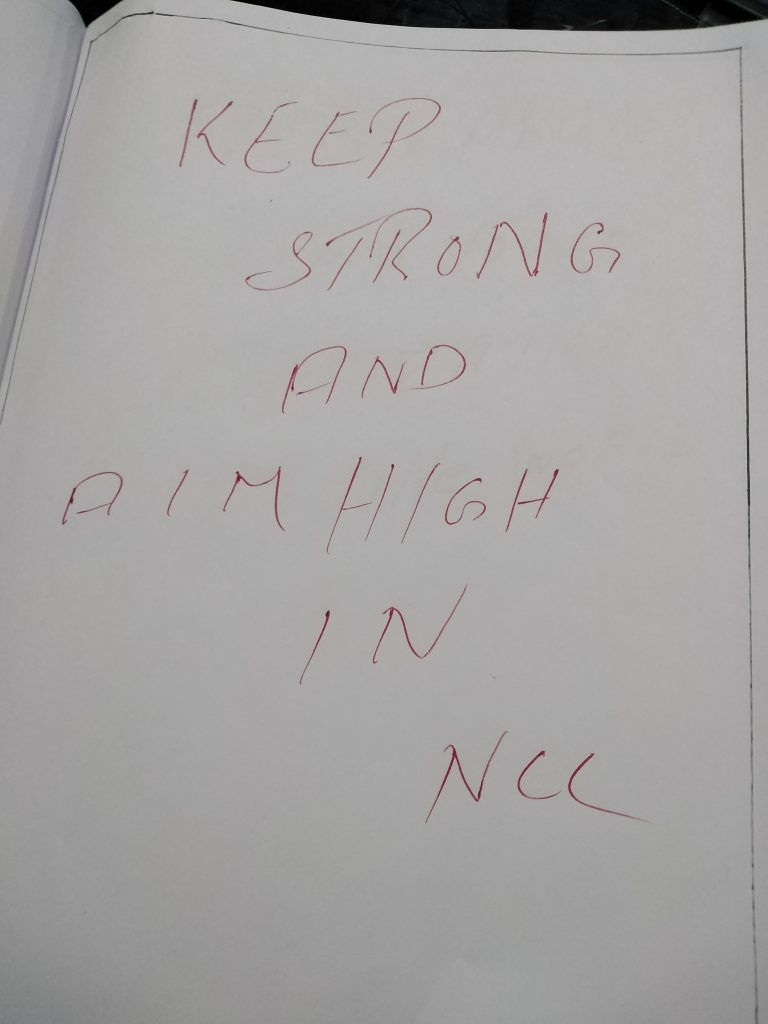 KEEP
STRONG
AND
AIM HIGH
IN
NCC